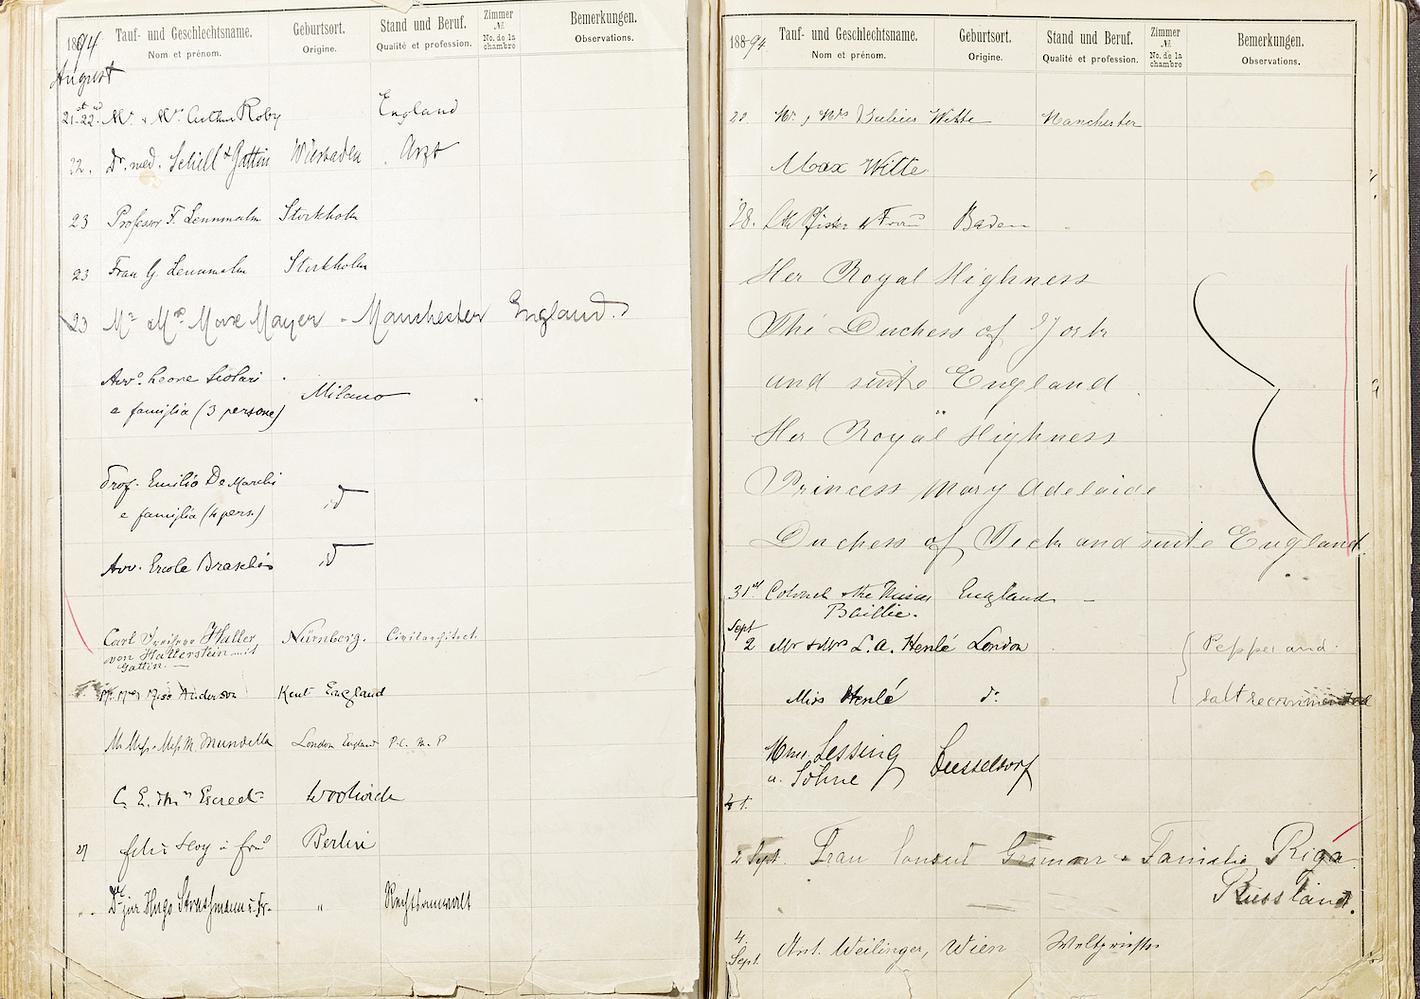 1894
Tauf- und Geschlechtsname.
Nom et prénom.
Geburtsort.
Origine.
Stand und Beruf.
Qualité et profession.
Zimmer
№
No. de la
chambre
Bemerkungen.
Observations.
August
21st-22nd Mr. & Mrs. Arthur Roby England
22. Dr. med. Schill & Gattin Wiesbaden Arzt
23 Professor F. Lennmalm Stockholm
23 Frau G. Lennmalm Stockholm
23 Mr & Mrs Max Mayer - Manchester England.
Avvo. Leone Scolari
e famiglia (3 persone) Milano
Prof. Emilio De Marchi
e famiglia (4 pers.) id
Avv. Ercole id
Carl Freiherr Haller
von Hallerstein mit
Gattin. — Nürnberg. Civilarchitect.
Mr. Mrs Miss Anderson Kent England
Mr. Miss M. Mundella London England P.C. M.P
C. E. Escreet Woolwich
27 Felix u Frau Berlin
Dr jur Hugo Strassmann u. Fr. " Rechtsanwalt
1894
Tauf- und Geschlechtsname.
Nom et prénom.
Geburtsort.
Origine.
Stand und Beruf.
Qualité et profession.
Zimmer
№
No. de la
chambre
Bemerkungen.
Observations.
Mr. & Mrs Julius Witte Manchester
Max Witte
28. Pfister u Frau Baden
Her Royal Highness
The Duchess of York
and suite England
Her Royal Highness
Princess Mary Adelaide
Duchess of Teck and suite England.
31st Colonel & the Misses England —
Baillie.
Sept
2 Mr & Mrs L. A. Henlé London Pepper and
Miss Henlé do. salt recommended
Lessing
u. Söhne Duesseldorf
2 Sept. Frau Consul & Familie Riga
Russland.
4.
Sept. Ant. Weilinger, Wien Weltpriester